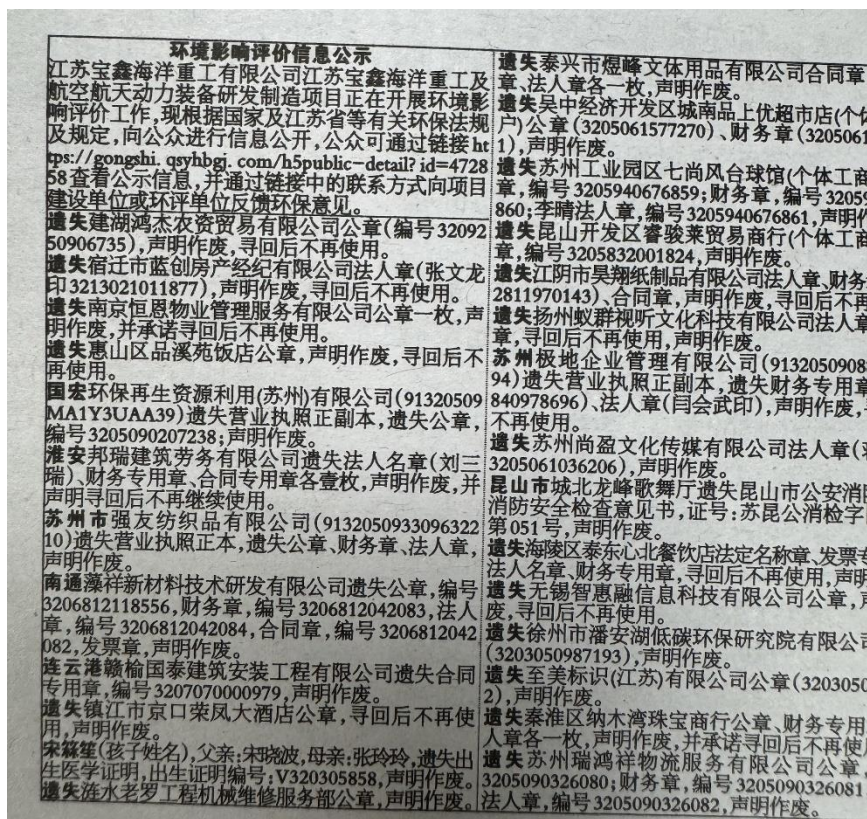 环境影响评价信息公示
江苏宝鑫海洋重工有限公司江苏宝鑫海洋重工及
航空航天动力装备研发制造项目正在开展环境影
响评价工作,现根据国家及江苏省等有关环保法规
及规定,向公众进行信息公开,公众可通过链接ht
tps://gongshi.qsyhbgj.com/h5public-detail?id=4728
58查看公示信息,并通过链接中的联系方式向项目
建设单位或环评单位反馈环保意见。
遗失建湖鸿杰农资贸易有限公司公章(编号32092
50906735),声明作废,寻回后不再使用。
遗失宿迁市蓝创房产经纪有限公司法人章(张文龙
印3213021011877),声明作废,寻回后不再使用。
遗失南京恒恩物业管理服务有限公司公章一枚,声
明作废,并承诺寻回后不再使用。
遗失惠山区品溪苑饭店公章,声明作废,寻回后不
再使用。
国宏环保再生资源利用(苏州)有限公司(91320509
MA1Y3UAA39)遗失营业执照正副本,遗失公章,
编号3205090207238;声明作废。
淮安邦瑞建筑劳务有限公司遗失法人名章(刘三
瑞)、财务专用章、合同专用章各壹枚,声明作废,并
声明寻回后不再继续使用。
苏州市强友纺织品有限公司(9132050933096322
10)遗失营业执照正本,遗失公章、财务章、法人章,
声明作废。
南通藻祥新材料技术研发有限公司遗失公章,编号
3206812118556,财务章,编号3206812042083,法人
章,编号3206812042084,合同章,编号3206812042
082,发票章,声明作废。
连云港赣榆国泰建筑安装工程有限公司遗失合同
专用章,编号3207070000979,声明作废。
遗失镇江市京口荣凤大酒店公章,寻回后不再使
用,声明作废。
宋箖笙(孩子姓名),父亲:宋晓波,母亲:张玲玲,遗失出
生医学证明,出生证明编号:V320305858,声明作废。
遗失涟水老罗工程机械维修服务部公章,声明作废。
遗失泰兴市煜峰文体用品有限公司合同章
章、法人章各一枚,声明作废。
遗失吴中经济开发区城南品上优超市店(个体
户)公章(3205061577270)、财务章(3205061
1),声明作废。
遗失苏州工业园区七尚风台球馆(个体工商
章,编号3205940676859;财务章,编号32059
860;李晴法人章,编号3205940676861,声明作
遗失昆山开发区睿骏莱贸易商行(个体工商
章,编号3205832001824,声明作废。
遗失江阴市昊翔纸制品有限公司法人章、财务
2811970143)、合同章,声明作废,寻回后不再
遗失扬州蚁群视听文化科技有限公司法人章
章,寻回后不再使用,声明作废。
苏州极地企业管理有限公司(91320509088
94)遗失营业执照正副本,遗失财务专用章
840978696)、法人章(闫会武印),声明作废,
不再使用。
遗失苏州尚盈文化传媒有限公司法人章(
3205061036206),声明作废。
昆山市城北龙峰歌舞厅遗失昆山市公安消防
消防安全检查意见书,证号:苏昆公消检字
第051号,声明作废。
遗失海陵区泰东心北餐饮店法定名称章、发票专
法人名章、财务专用章,寻回后不再使用,声明
遗失无锡智惠融信息科技有限公司公章,声
废,寻回后不再使用。
遗失徐州市潘安湖低碳环保研究院有限公司
(3203050987193),声明作废。
遗失至美标识(江苏)有限公司公章(3203050
2),声明作废。
遗失秦淮区纳木湾珠宝商行公章、财务专用
人章各一枚,声明作废,并承诺寻回后不再使用
遗失苏州瑞鸿祥物流服务有限公司公章,
3205090326080;财务章,编号3205090326081
法人章,编号3205090326082,声明作废。